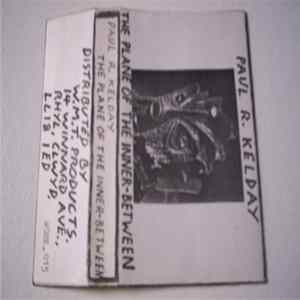 PAUL R. KELDAY
THE PLANE OF THE INNER-BETWEEN
PAUL R. KELDAY
THE PLANE OF THE INNER-BETWEEN
DISTRIBUTED BY
W.M.T. PRODUCTS.
14 WINNARD AVE.,
RHYL, CLWYD,
LL18 1ED